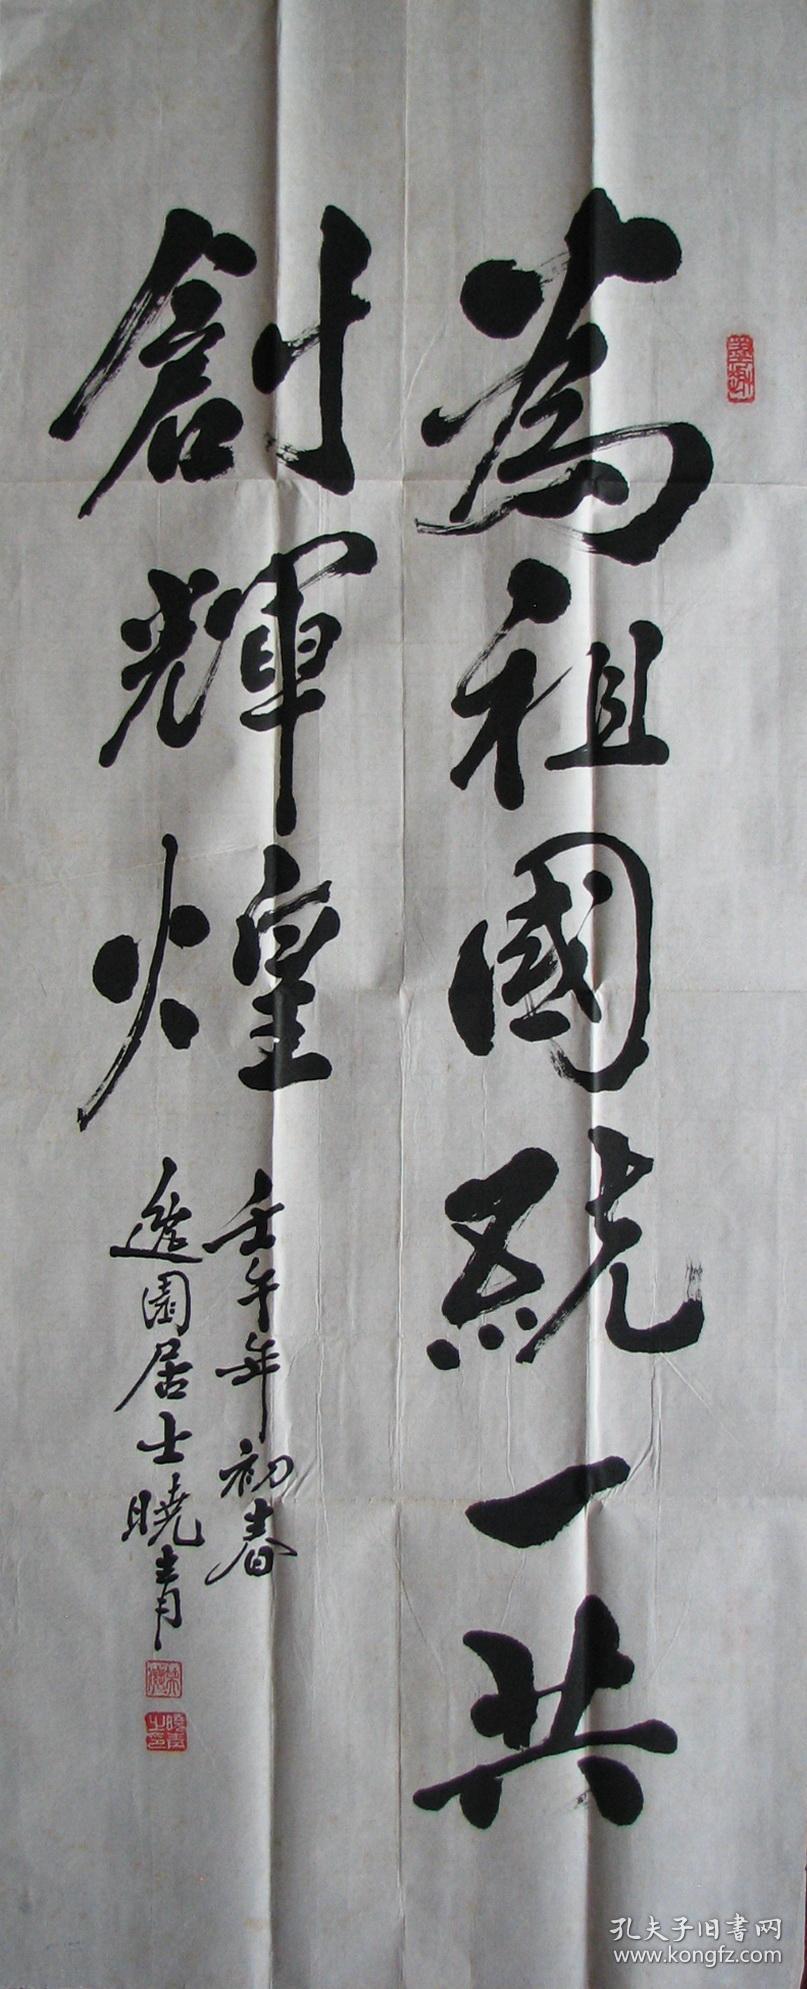 為祖國統一共
創輝煌
壬午年初春
逸園居士曉青
曉青之印
孔夫子旧书网
www.kongfz.com